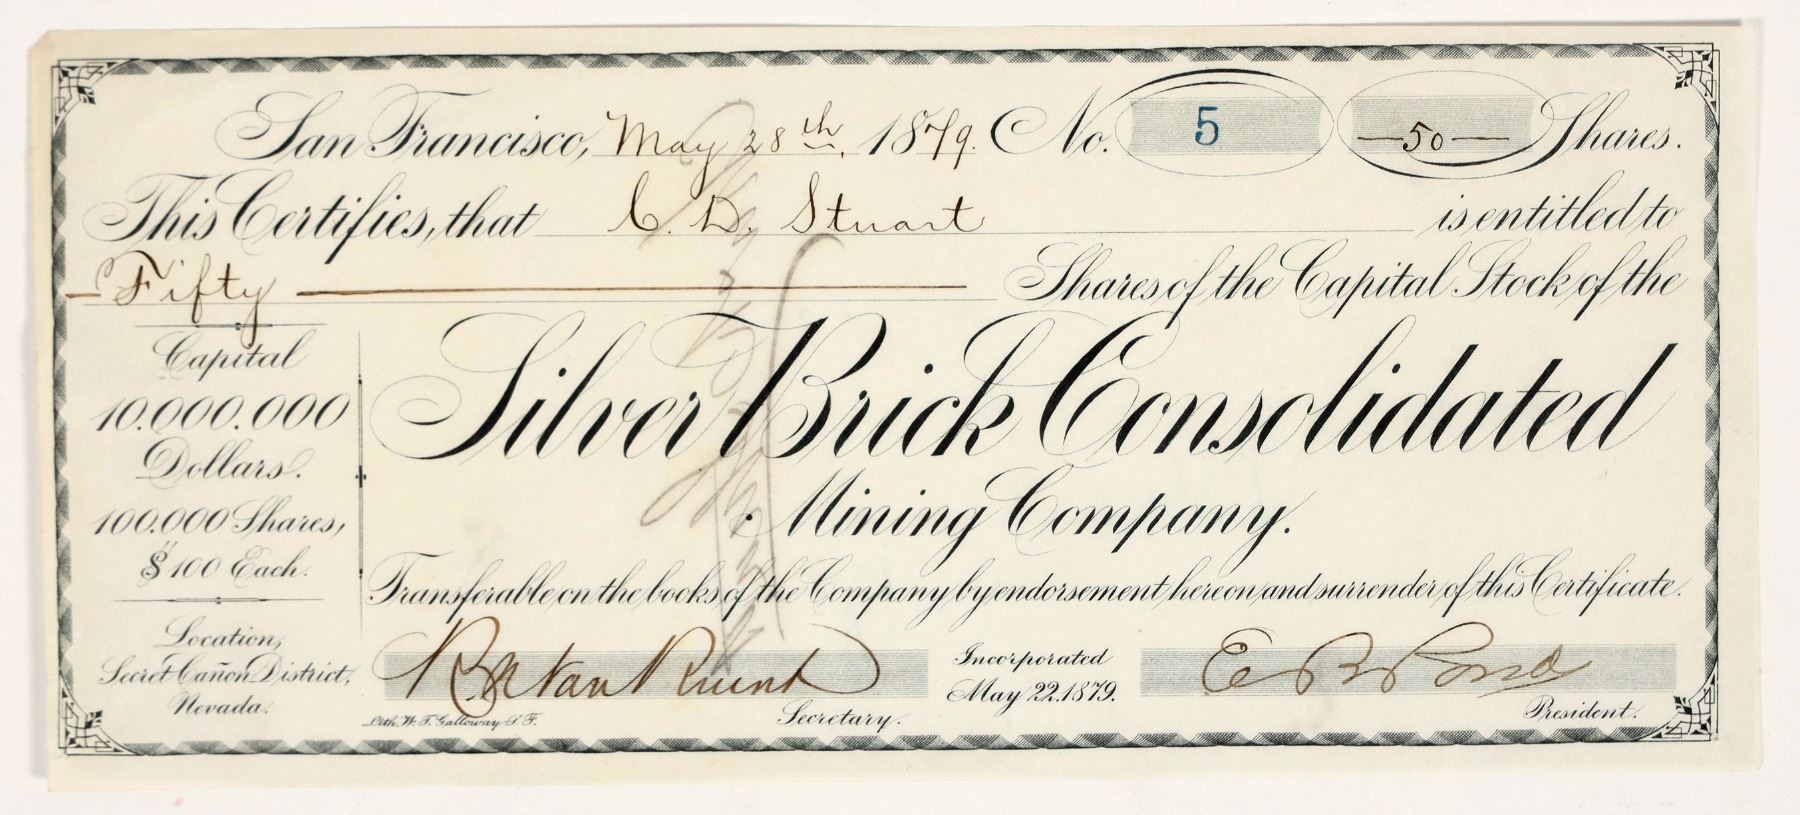 San Francisco, May 28th, 1879. No. 5 — 50 — Shares.
This Certifies, that C. D. Stuart is entitled to
— Fifty — Shares of the Capital Stock of the
Silver Brick Consolidated
Mining Company.
Transferable on the books of the Company by endorsement hereon and surrender of this Certificate.
Capital
10.000.000
Dollars.
100.000 Shares,
$100 Each.
Location,
Secret Cañon District,
Nevada.
Secretary.
Incorporated
May 22. 1879.
E B Pond
President.
Lith. W. T. Galloway S. F.